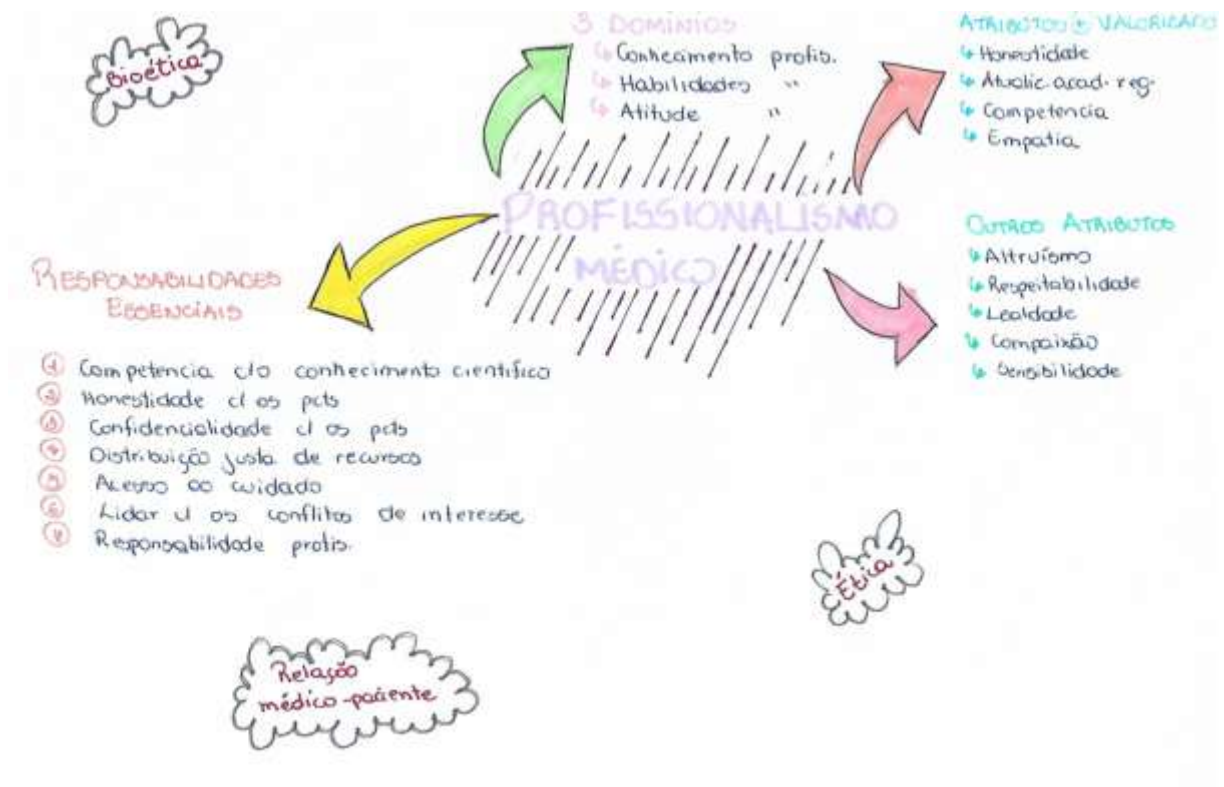 Bioética
3 DOMÍNIOS
Conhecimento profis.
Habilidades "
Atitude "
ATRIBUTOS + VALORIZADO
Honestidade
Atualiz. acad. reg.
Competencia
Empatia
PROFISSIONALISMO
MÉDICO
OUTROS ATRIBUTOS
Altruísmo
Respeitabilidade
Lealdade
Compaixão
Sensibilidade
RESPONSABILIDADES
ESSENCIAIS
1 Competencia c/o conhecimento científico
2 Honestidade c/ os pcts
3 Confidencialidade c/ os pcts
4 Distribuição justa de recursos
5 Acesso ao cuidado
6 Lidar c/ os conflitos de interesse
7 Responsabilidade profis.
Ética
Relação
médico-paciente